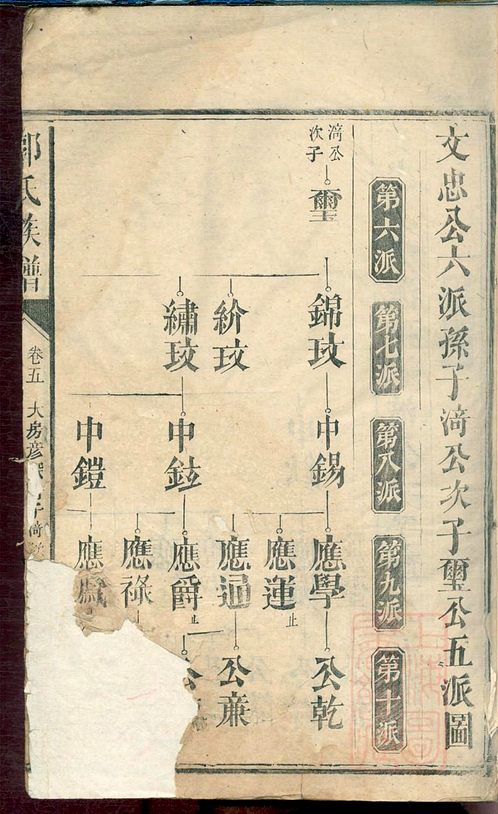 文忠公六派孫子渏公次子璽公五派圖
第六派
第七派
第八派
第九派
第十派
渏公
次子
璽
錦玟
紒玟
繡玟
中錫
中鉉
中鎧
應學
應運
止
應通
應爵
止
應祿
應
公乾
公亷
公
郭氏族譜
卷五
大房彦